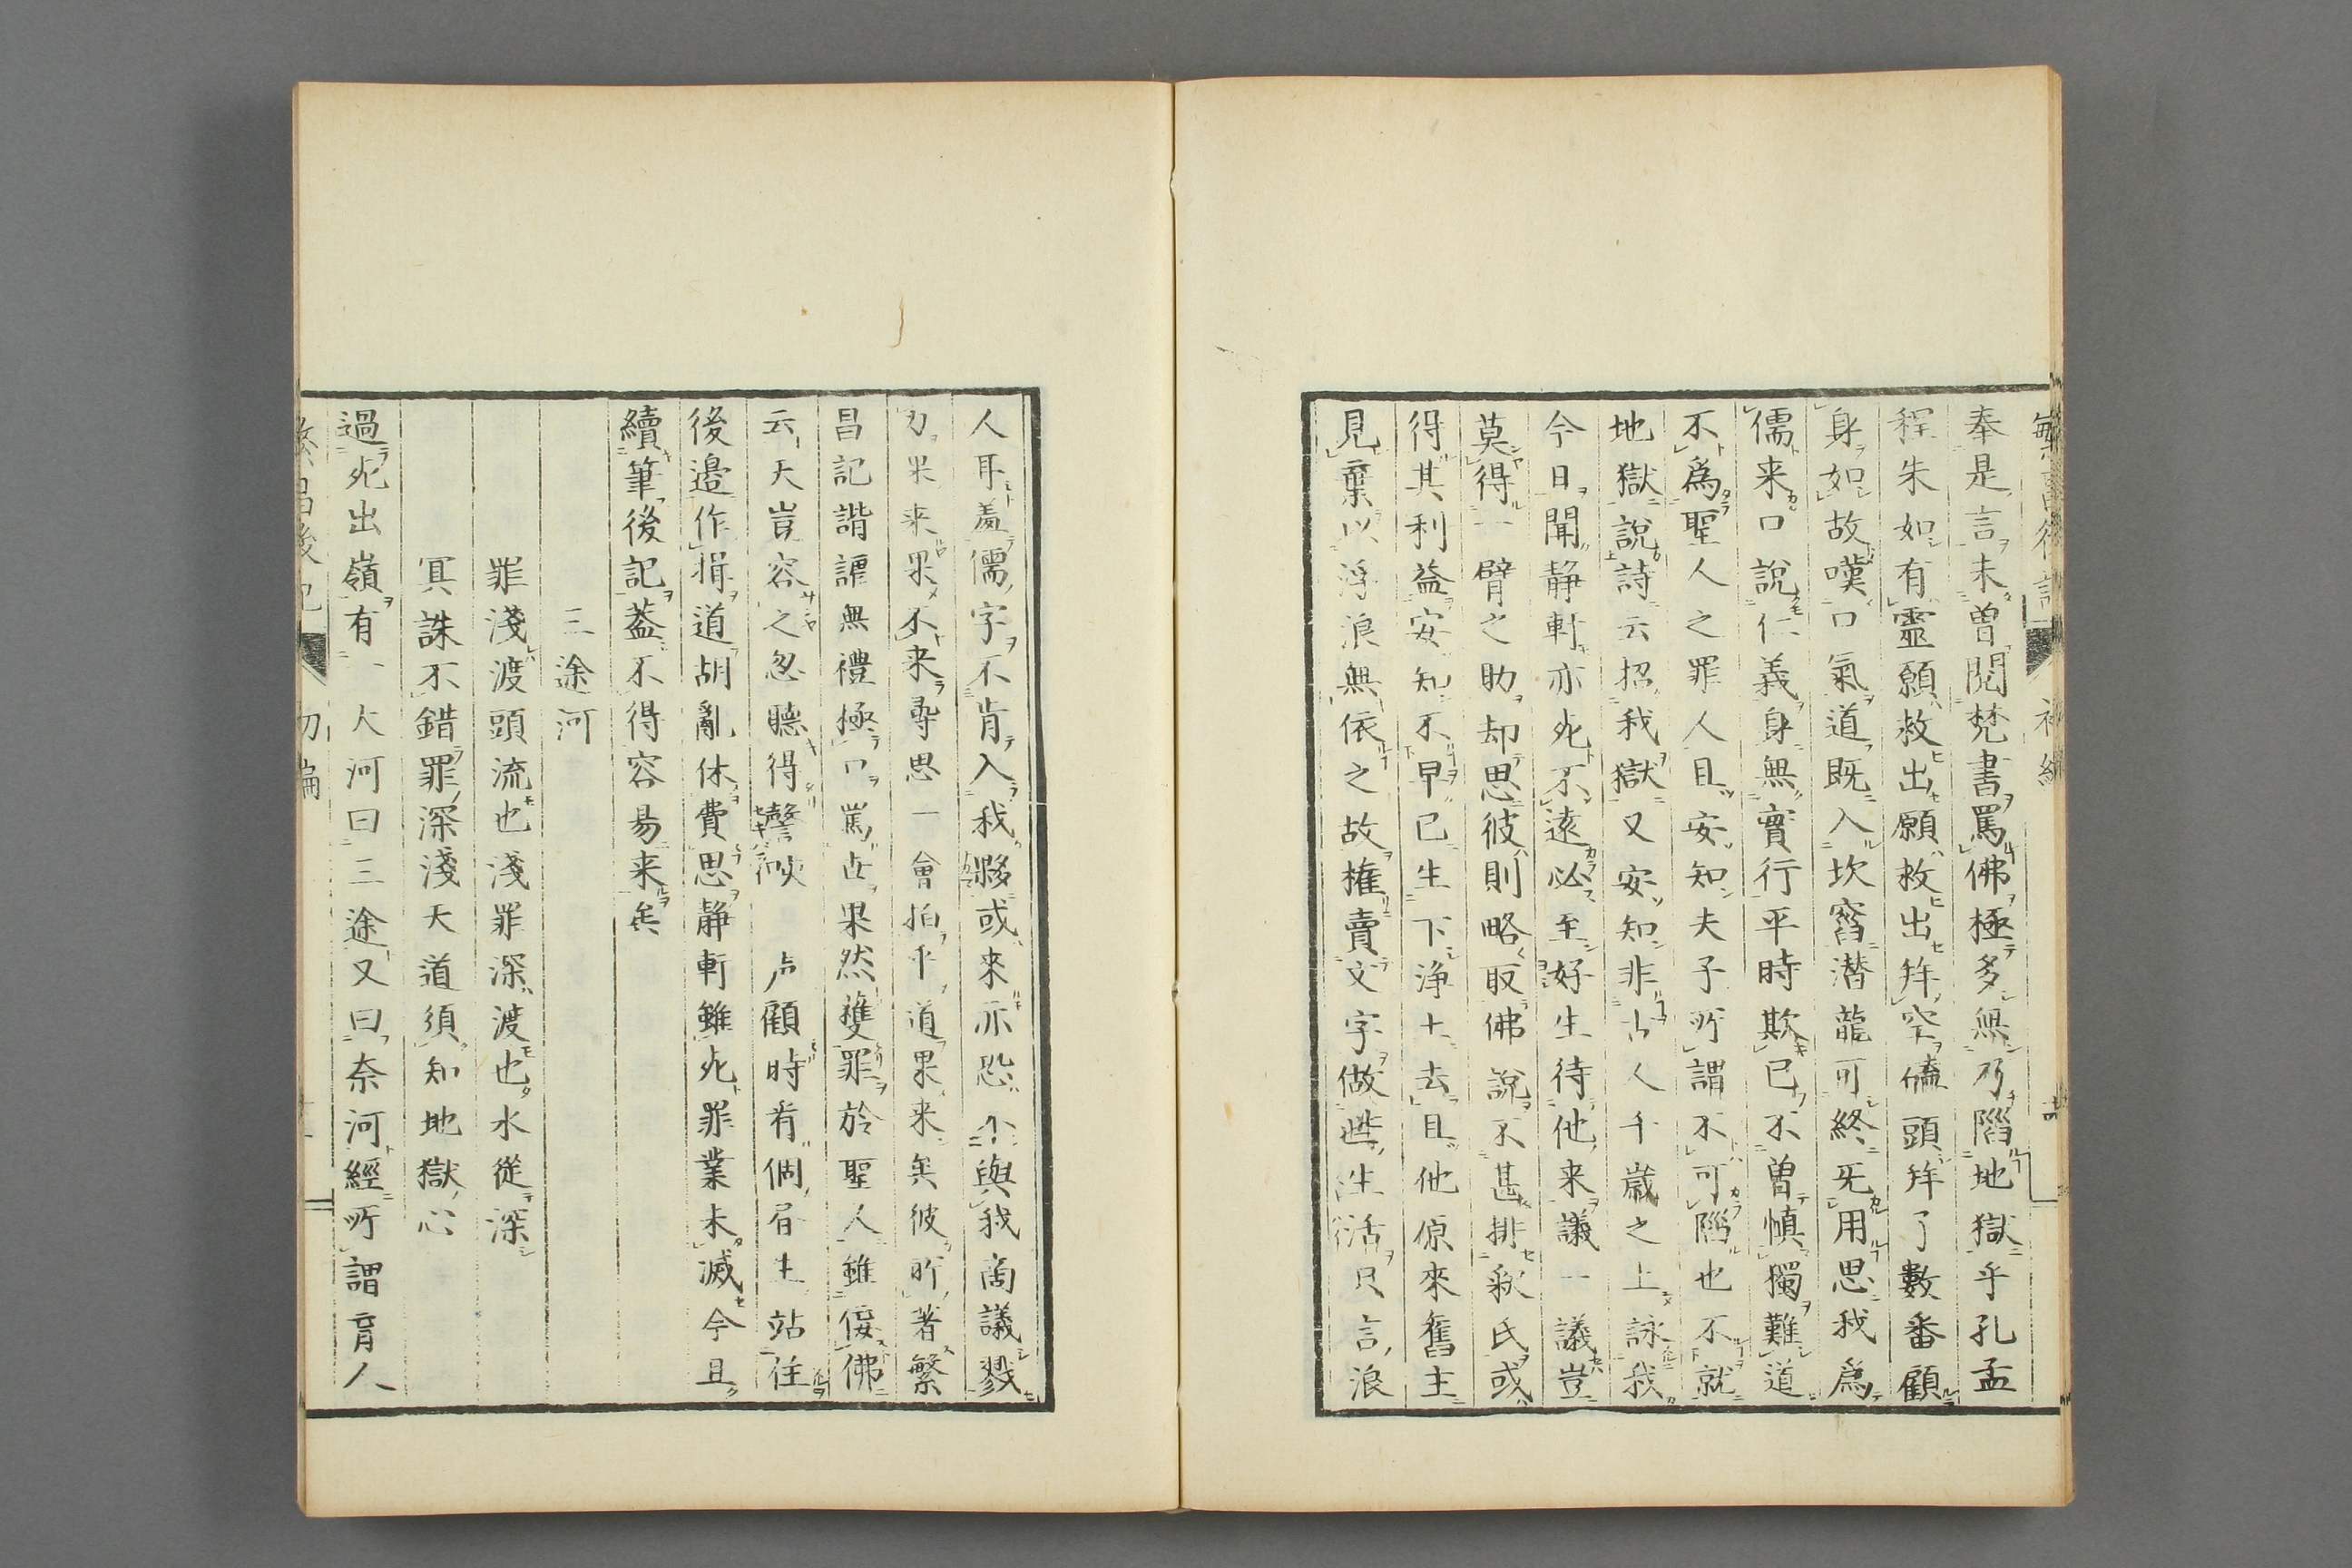 奉是言未曽閲梵書罵佛極多無乃陷地獄乎孔孟
程朱如有靈願救出願救出拜空儘頭拜了數番顧
身如故嘆口氣道既入坎窞潜龍可終旡用思我為
儒来口說仁義身無實行平時欺已不曽慎獨難道
不為聖人之罪人且安知夫子所謂不可陷也不就
地獄說詩云招我獄又安知非古人千歲之上詠我
今日聞静軒亦死不遠必至好生待他来議一議豈
莫得一臂之助却思彼則略取佛說不甚排釈氏或
得其利益安知不早已生下浄土去且他原來舊主
見棄以浮浪無依之故権賣文字做些生活只言浪
人耳羞儒字不肯入我夥或來亦恐不與我商議戮
力果来果不来尋思一會拍乎道果来矣彼所著繁
昌記諧謔無禮極口罵世果然獲罪於聖人雖佞佛
云天豈容之忽聽得謦欬 声顧時看個眉生站住
後邊作揖道胡亂休費思静軒雖死罪業未滅今且
續筆後記蓋不得容易来矣
三途河
罪淺渡頭流也淺罪深渡也水從深
冥誅不錯罪深淺天道須知地獄心
過死出嶺有一大河曰三途又曰奈河經所謂育人